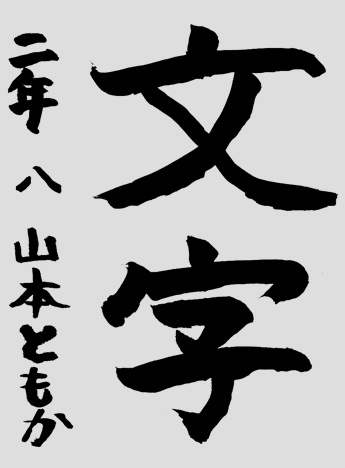 文字
二年 八 山本ともか